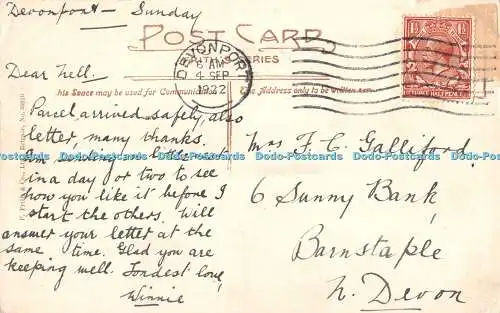 Devonport - Sunday
POST CARD
ARTISTIC SERIES
DEVONPORT
6 AM
4 SEP
1922
THREE HALFPENCE
This Space may be used for Communication
The Address only to be written here
Dear Nell.
Parcel arrived safely, also
letter, many thanks.
Am sending a collar
in a day or two to see
how you like it before I
start the others. Will
answer your letter at the
same time. Glad you are
keeping well. Fondest love,
Winnie
Mrs F. C. Galliford
6 Sunny Bank,
Barnstaple
N. Devon
Dodo-Postcards Dodo-Postcards Dodo-Postcards Dodo-Postcards Dodo-Postcards Dodo-Postcards